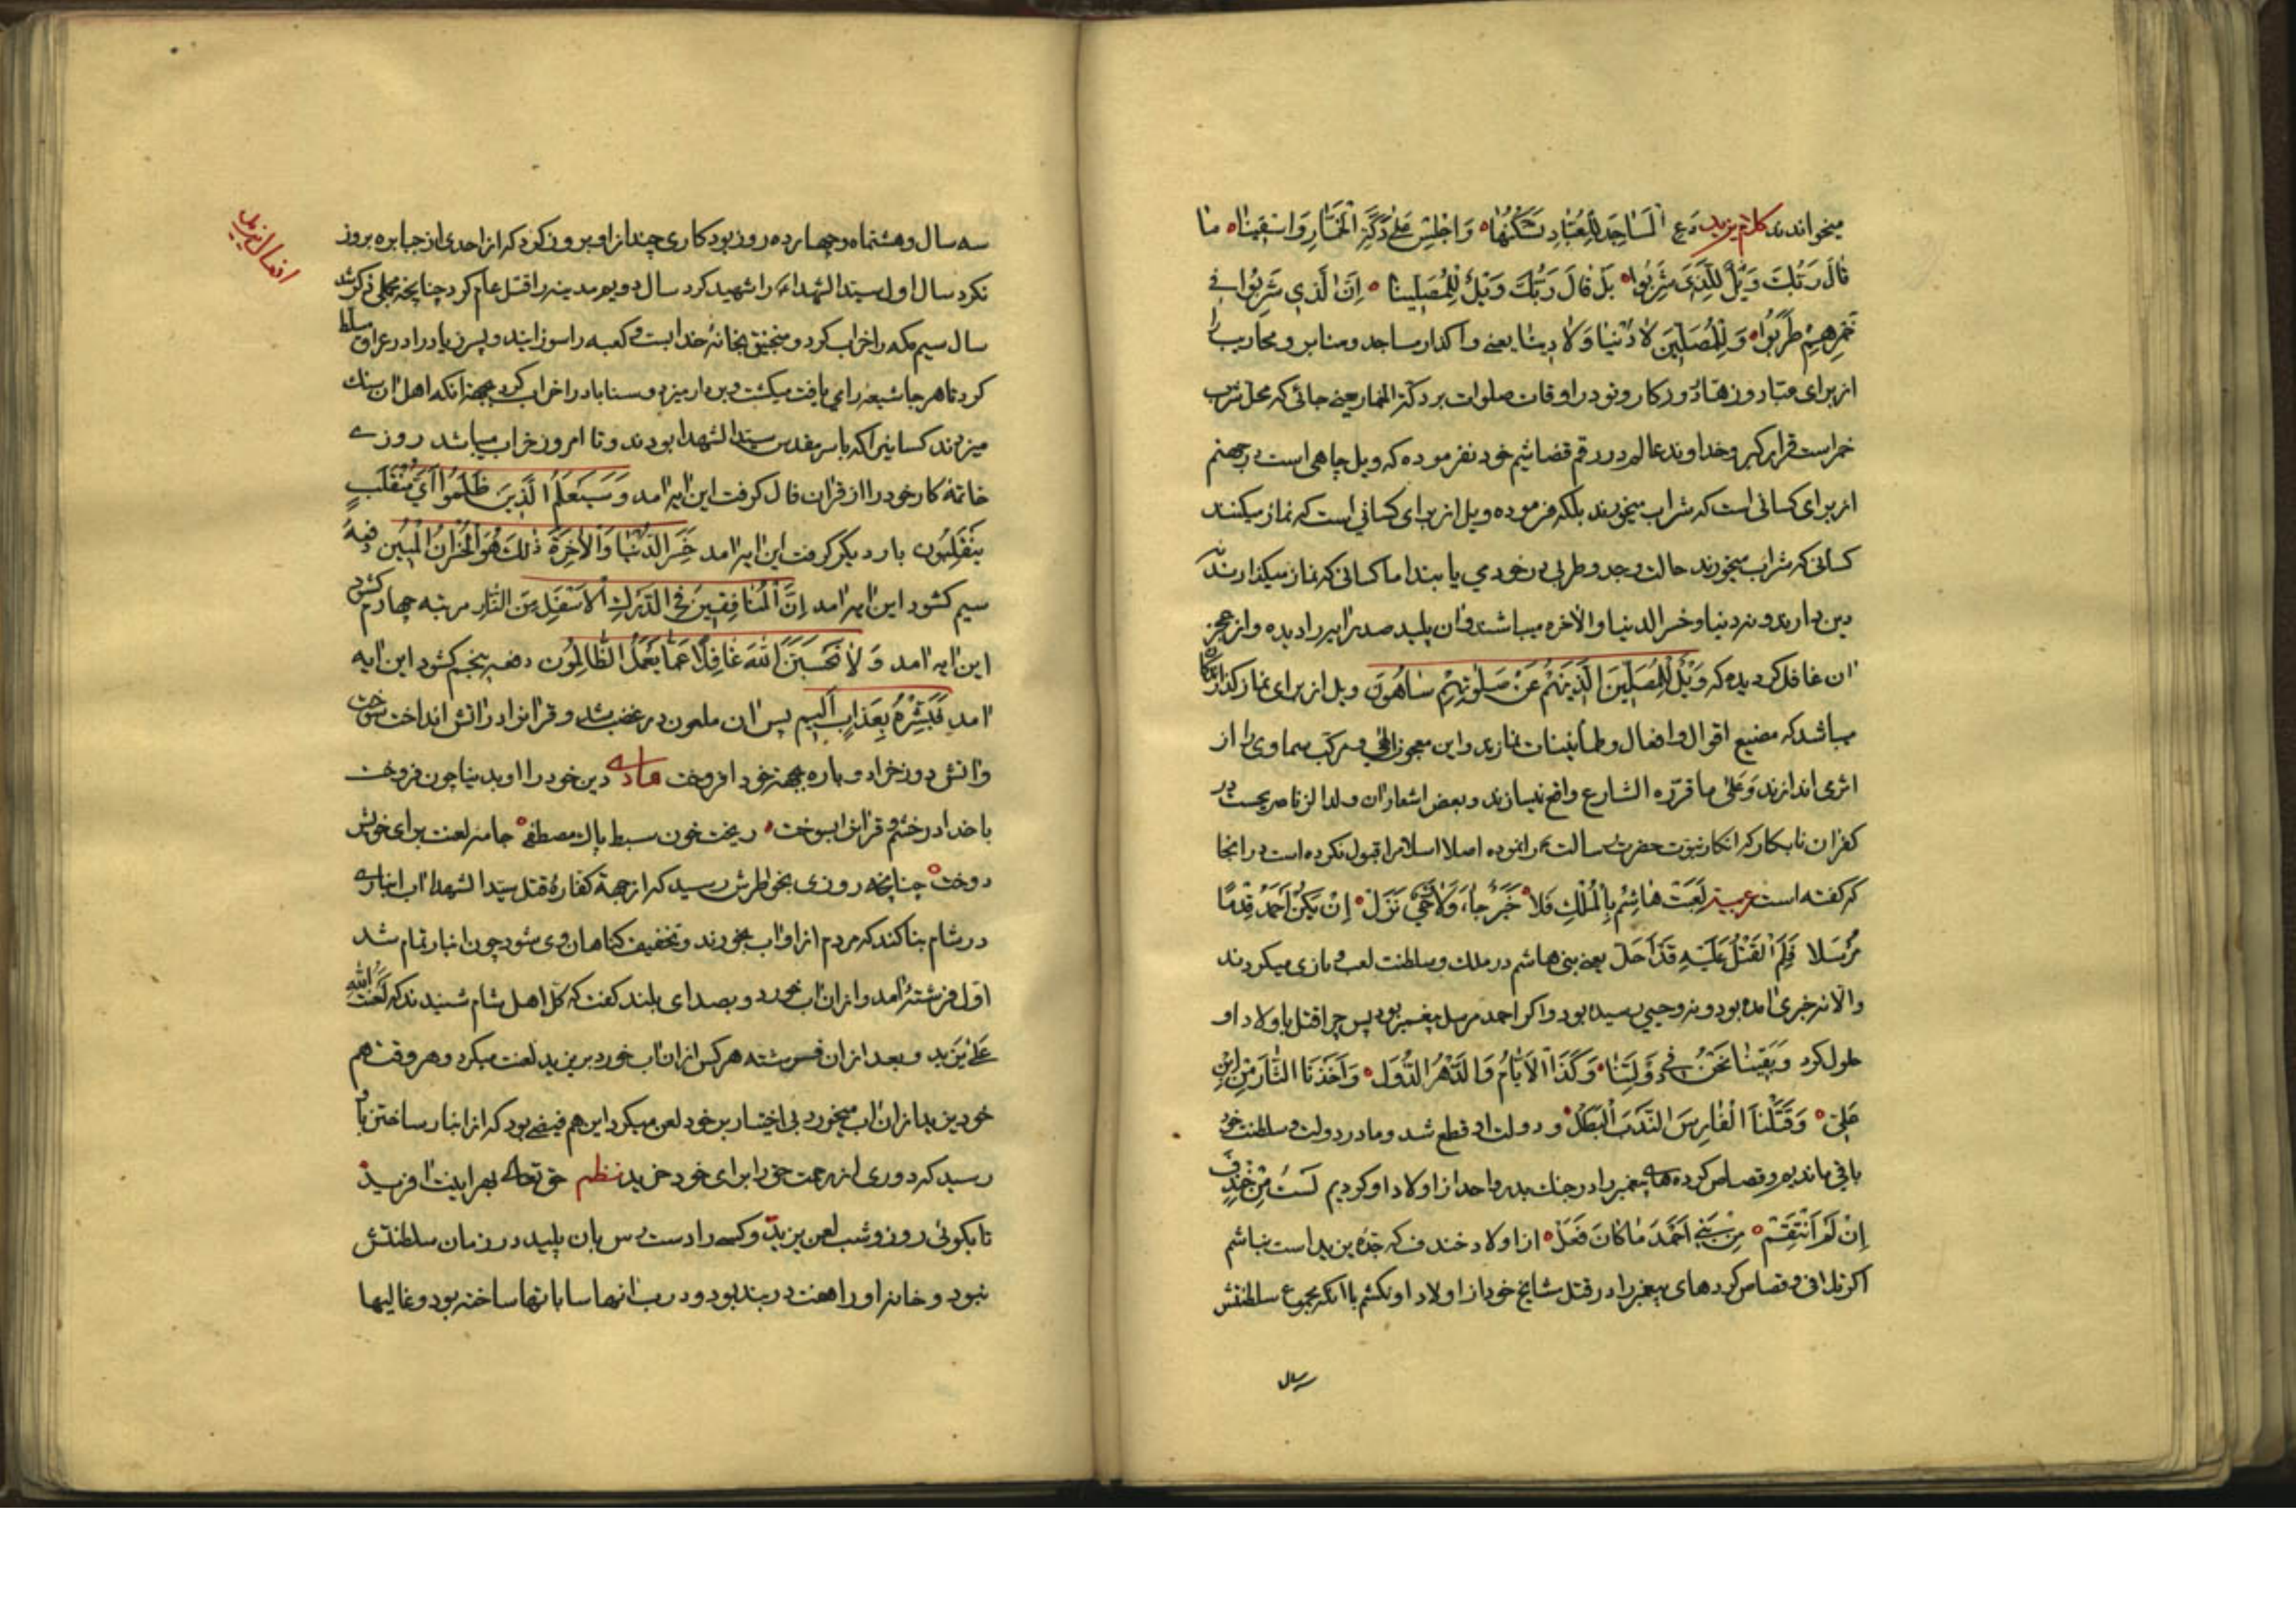 میخواندند کلام یزید دَعِ الْمَسَاجِدَ لِلْعُبَّادِ تَسْكُنُهَا وَاجْلِسْ عَلَىٰ دَكَّةِ الْخَمَّارِ وَاسْقِينَا مَا
قَالَ رَبُّكَ وَيْلٌ لِلَّذِي شَرِبُوا بَلْ قَالَ رَبُّكَ وَيْلٌ لِلْمُصَلِّينَا اِنَّ الَّذِي شَرِبُوا فِي
خَمْرِهِمْ طَرِبُوا وَ لِلْمُصَلِّينَ لَا دُنْيَا وَ لَا دِينَا یعنی واگذار مساجد و منابر و محاریب را
از برای عباد و زهاد روزکار و تو در اوقات صلوات بر دکة الخمار یعنی جائی که محل شرب
خمر است قرار گیر و خداوند عالم در رقم قضا شیم خود نفرموده که ویل چاهی است در جهنم
از برای کسانی است که شراب میخورند بلکه فرموده ویل از برای کسانی است که نماز میکنند
کسانی که شراب میخورند حالت وجد و طربی در خود می یابند اما کسانی که نماز میکذارند نه
دین دارند و نه دنیا و خسر الدنیا والاخره میباشند و ان پلید صدر ایه را دیده و از عجز
ان غافل کردیده که وَيْلٌ لِلْمُصَلِّينَ الَّذِينَهُمْ عَنْ صَلٰوتِهِمْ سَاهُونَ ویل از برای نماز کذارانی
میباشد که مضیع اقوال و افعال و طمأنینات نمازند و این معجون الهی و مرکب سماوی را از
اثری اندازند و علی ما قرّره الشارع واقع نیسازند و بعض اشعار ان ولد الزنا صریحست در
کفر ان نابکار که انکار نبوت حضرت رسالت را نموده اصلا اسلام را قبول نکرده است در انجا
که کفته است عربیة لَعِبَتْ هَاشِمُ بِالْمُلْكِ فَلَا خَبَرٌ جَاءَ وَلَا وَحْيٌ نَزَلْ اِنْ يَكُنْ اَحْمَدُ قِدْمًا
مُرْسَلا فَلِمَ الْقَتْلُ عَلَيْهِ قَدْ اَحَلّ یعنی بنی هاشم در ملک و سلطنت لعب و بازی میکردند
والا نه خبری امده بود و نه وحیی رسیده بود و اکر احمد مرسل پیغمبر بود پس چرا قتل باولاد او
حلول کرد وَ بَقِينَا نَحْنُ فِي دَوْلَتِنَا وَ كَذَا الْاَيَّامُ وَ الدَّهْرُ الدُّوَلْ وَ اَخَذْنَا الثَّارَ مِنْ ابْنِ
عَلِيّ وَ قَتَلْنَا الْفَارِسَ النَّدْبَ الْبَطَلْ و دولت او قطع شد و ما در دولت و سلطنت خود
باقی ماندیم و قصاص کرده های پیغمبر را در جنک بدر و احد از اولاد او کردیم لَسْتُ مِنْ خِنْدِفَ
اِنْ لَمْ اَنْتَقِمْ مِنْ بَنِي اَحْمَدَ مَا كَانَ فَعَلْ از اولاد خندف که جدّه یزید است نباشم
اکر تلافی و قصاص کردهای پیغمبر را در قتل مشایخ خود از اولاد او نکشم با انکه مجموع سلطنتش
سه سال
افعال یزید
سه سال و هشتماه و چهارده روز بود کاری چند از او بروز کرد که از احدی از جبابره بروز
نکرد سال اول سید الشهداء را شهید کرد سال دویم مدینه را قتل عام کرد چنانچه مجملی ذکر شد
سال سیم مکه را خراب کرد و منجنیق بخانهٔ خدا بست و کعبه را سوزانید و پسر زیاد را در عراق مسلط
کرد تا هر جا شیعه را می یافت میکشت و بر دار میزد و سناباد را خراب کرد بجهة انکه اهل ان سنک
میزدند کسانیرا که با سر مقدس سید الشهدا بودند و تا امروز خراب میباشد روزی
خاتمهٔ کار خود را از قران فال کرفت این ایه امد وَ سَيَعْلَمُ الَّذِينَ ظَلَمُوا أَيَّ مُنْقَلَبٍ
يَنْقَلِبُون بار دیگر کرفت این ایه امد خَسِرَ الدُّنْيَا وَالْاٰخِرَةَ ذٰلِكَ هُوَ الْخُسْرَانُ الْمُبِين دفعهٔ
سیم کشود این ایه امد اِنَّ الْمُنَافِقِينَ فِي الدَّرَكِ الْاَسْفَلِ مِنَ النَّارِ مرتبه چهارم کشود
این ایه امد وَ لَا تَحْسَبَنَّ اللّٰهَ غَافِلًا عَمَّا يَعْمَلُ الظَّالِمُون دفعه پنجم کشود این ایه
امد فَبَشِّرْهُ بِعَذَابٍ اَلِيم پس ان ملعون در غضب شد و قرانرا در اتش انداخت سوخت
و اتش دوزخ را دوباره بجهة خود افروخت دین خود را او بدنیا چون فروخت
با خدا در خشم و قرانش بسوخت ریخت خون سبط پاک مصطفی جامه لعنت برای خویش
دوخت چنانچه روزی بخاطرش رسید که از جهة کفارهٔ قتل سید الشهدا اب انباری
در شام بنا کند که مردم از او اب بخورند و تخفیف کناهان وی شود چون انبار تمام شد
اول فرشتهٔ امد و از ان اب خورد و بصدای بلند کفت که کل اهل شام شنیدند که لَعْنَتُ اللّٰهِ
عَلَىٰ يَزِيد و بعد از ان فرشته هر کس از ان اب خورد بر یزید لعنت میکرد و هر وقت هم
خود یزید از ان اب میخورد بی اختیار بر خود لعن میکرد این هم فیضی بود که از انبار ساختن باو
رسید که دوری از رحمت حق را برای خود خرید نظم حق تعالی بهر اینت افرید
تا بکوئی روز و شب لعن یزید و کسی را دست رس بان پلید در زمان سلطنتش
نبود و خانه او را هفت دربند بود و درب انها ساباتها ساخته بود و غالیها